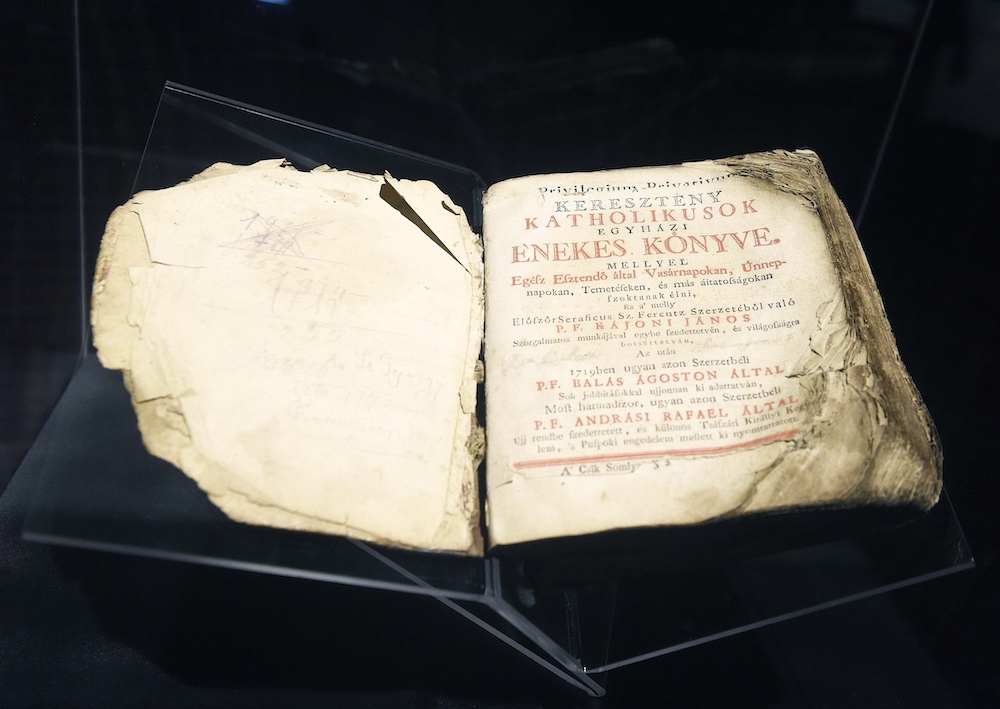 Privilegium Privativum
KERESZTÉNY
KATHOLIKUSOK
EGYHÁZI
ENEKES KÖNYVE.
MELLYEL
Egész Esztendő által Vasárnapokan, Ünnep-
napokan, Temetéseken, és más áitatosságokan
szoktanak élni,
És a' melly
Elöszször Seraficus Sz. Ferentz Szerzetéből való
P. F. KÁJONI JÁNOS
Szorgalmatos munkájával egybe szedettetvén, és világosságra
botsáttatván,
Az után
1719ben ugyan azon Szerzetbéli
P.F. BALÁS ÁGOSTON ÁLTAL
Sok jobbitásokkal ujjonnan ki adattatván,
Most harmadszor, ugyan azon Szerzetbéli
P.F. ANDRÁSI RAFAEL ÁLTAL
Ujj rendbe szedettetett, és különös Tsászári Királlyi
Püspöki engedelem mellett ki nyomtattatott
A' Csik